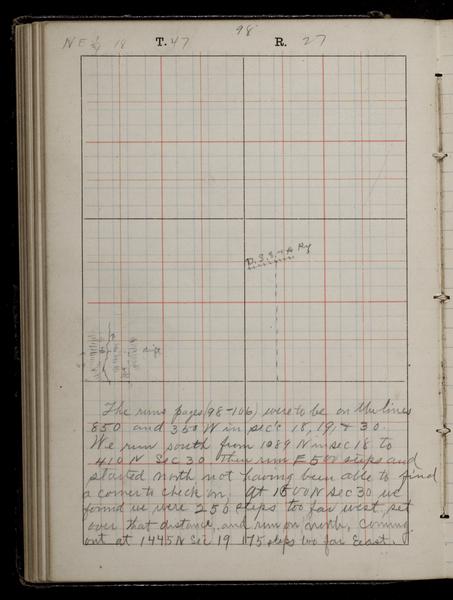 98
NE 1/4 18 T. 47 R. 27
D.S.S. & A Ry
The runs pages (98-106) were to be on the lines
850 and 350 W in sec's 18, 19, & 30.
We run south from 1089 N in sec 18 to
410 N Sec 30. Then run E 500 steps and
started north not having been able to find
a corner to check on. At 1500 N Sec 30 we
found we were 250 steps too far west, set
over that distance, and run on north, coming
out at 1445 N Sec 19 175 steps too far East.